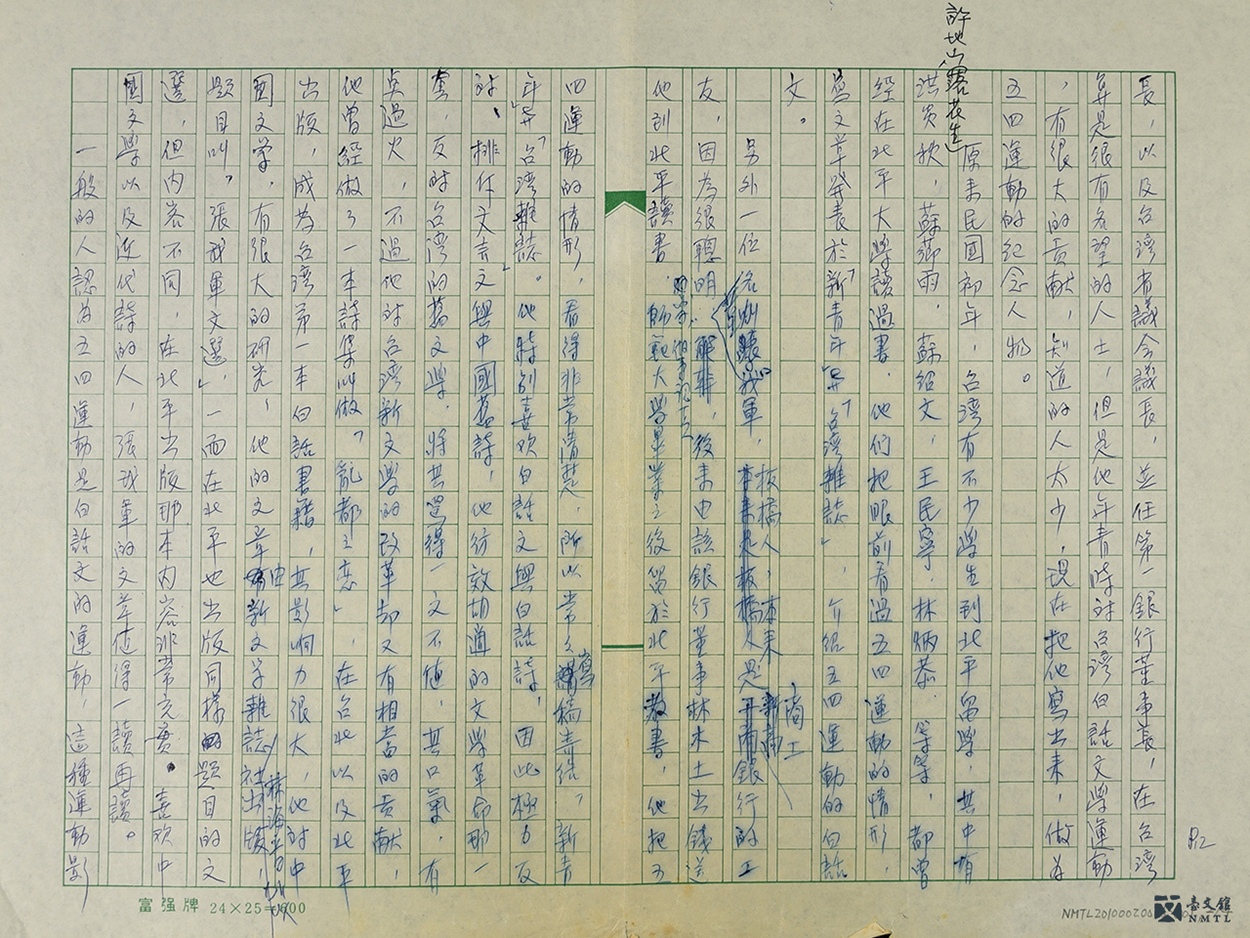 長，以及台灣省議会議長，並任第一銀行董事長，在台灣
算是很有名望的人士，但是他年青時対台湾白話文学運動
，有很大的贡献，知道的人太少，現在把他寫出来，做为
五四運動的纪念人物。
許地山 落花生
原来民國初年，台湾有不少学生到北平留学，其中有
洪炎秋，蘇薌雨，蘇绍文，王民寧，林炳恭，等等，都曾
经在北平大学讀过書，他们把眼前看過五四運動的情形，
寫文章発表於「新青年」与「台湾雜誌」，介绍五四運動的白話
文。
另外一位張我軍，板橋人，本来是商工銀行的工
友，因为很聰明，後来由該銀行董事林木土出錢送
他到北平讀書，師範大学畢業之後留於北平教書，他把五
四運動的情形，看得非常清楚，所以常々寫稿寄给「新青
年」与「台湾雜誌」。他特别喜欢白話文與白話詩，因此極力反
対、排斥文言文與中國舊詩，他仿效胡適的文学革命那一
套，反対台湾的舊文学，将其罵得一文不值，其口氣，有
点過火，不過他対台湾新文学的改革却又有相当的贡献，
他曾經做了一本詩集叫做，「亂都之恋」，在台北以及北平
出版，成为台湾第一本白話書籍，其影响力很大，他対中
國文学，有很大的研究，他的文章由新文学雜誌社出版，
題目叫，「張我軍文選」，一面在北平也出版同樣題目的文
選，但内容不同，在北平出版那本内容非常充實。喜欢中
國文学以及近代詩的人，張我軍的文章值得一讀再讀。
一般的人認为五四運動是白話文的運動，這種運動影
P.12
富强牌 24×25=600
台文館
NMTL